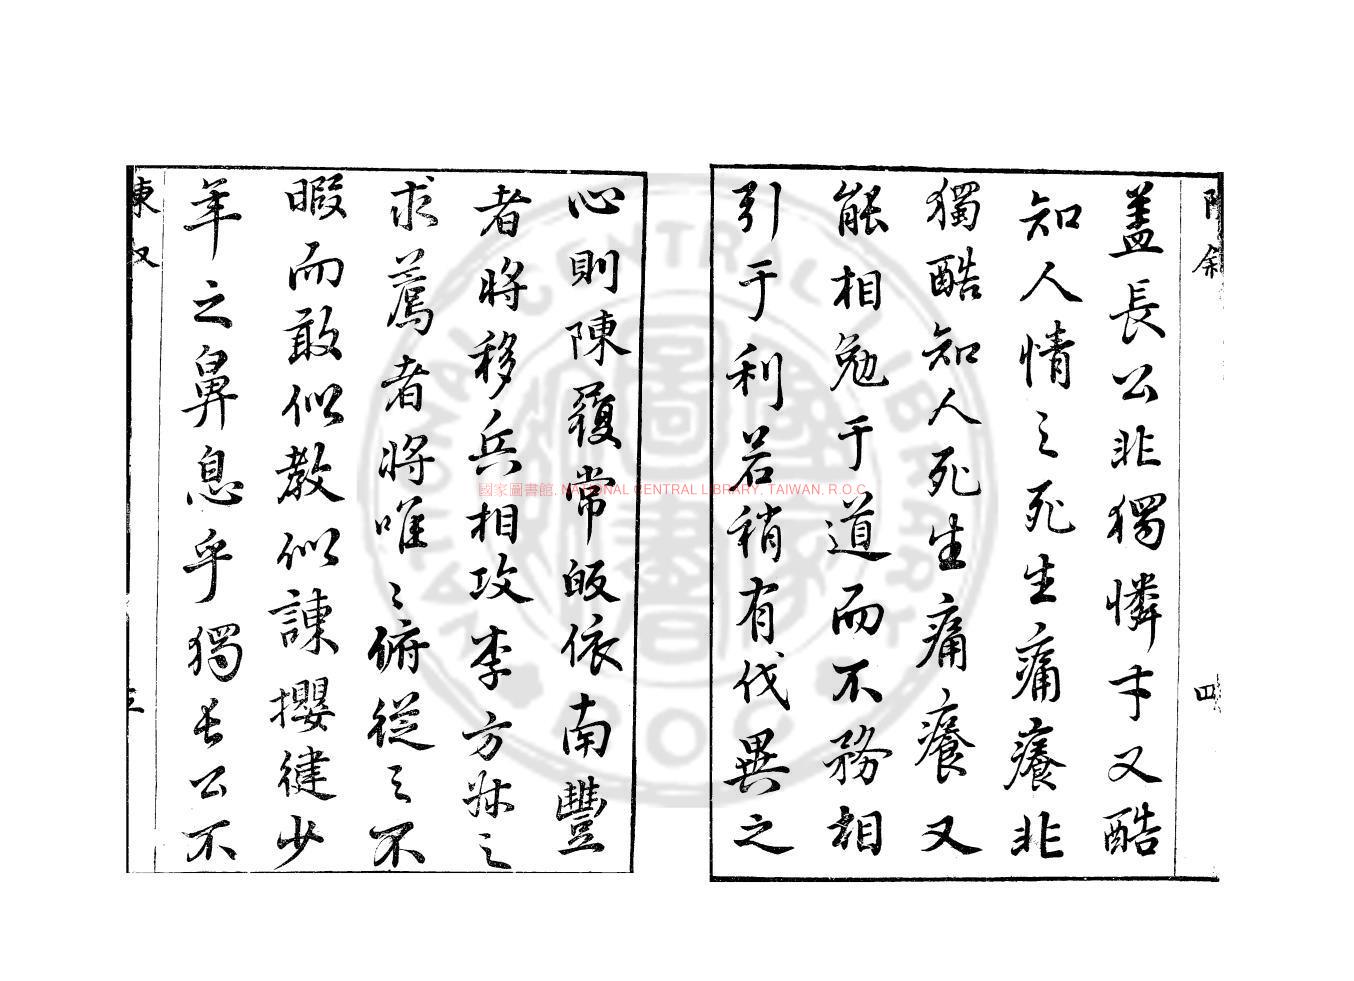 陳敘
四
蓋長公非獨憐才又酷
知人情之死生痛癢非
獨酷知人死生痛癢又
能相勉于道而不務相
引于利若稍有伐異之
心則陳履常皈依南豐
者將移兵相攻李方叔之
求薦者將唯〻俯從之不
暇而敢似教似諫攖健少
年之鼻息乎獨長公不
陳叙
三
國家圖書館, NATIONAL CENTRAL LIBRARY, TAIWAN, R.O.C.